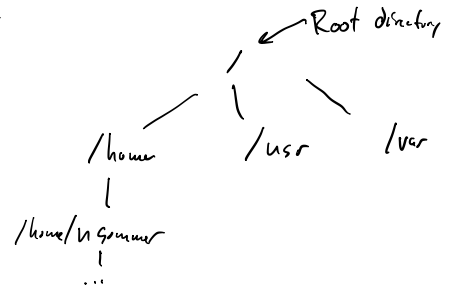 Root directory
/
/home /usr /var
/home/nsommer
...